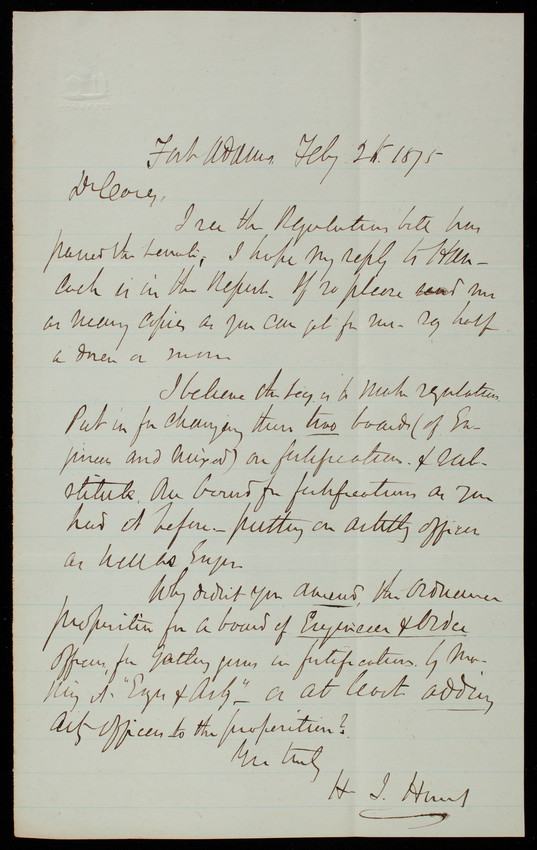 Fort Adams, Feby 25. 1875
Dr Casey,
I see the Regulations bill has
passed the Senate, I hope my reply to Han-
cock is in the Report. If so please send me
as many copies as you can get for me - say half
a dozen or more
I believe the Secy. is to make regulations
Put in for changing these two boards (of En-
gineers and mixed) on fortifications. & sub-
stitute one board for fortifications as you
had it before - putting on artilly officers
as well as Engrs
Why didn't you amend, the Ordnance
proposition for a board of Engineer & Ordce
officers, for Gatling guns in fortifications. by ma-
king it "Engr & Arty" - or at least adding
Arty officers to the proposition?
Yrs truly
H J Hunt